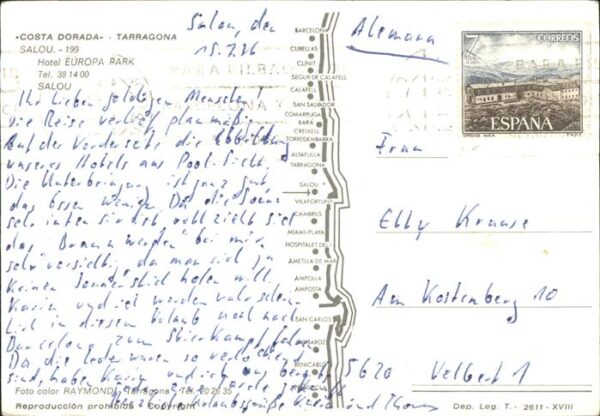 «COSTA DORADA» - TARRAGONA
SALOU. - 199
Hotel EUROPA PARK
Tel. 38 14 00
SALOU
Salou, den
15.7.76
Ihr lieben goldigen Menschen!
Die Reise verlief planmäßig
Auf der Vorderseite die Abbildung
unseres Hotels aus Pool-Sicht.
Die Unterbringung ist ganz gut,
das Essen weniger. Da die Sonne
sehr intensiv ist vollzieht sich
das "Braun werden" bei mir
sehr vorsichtig, da man sich ja
keinen Sonnenstich holen will
Karin und ich werden wahrschein-
lich in diesem Urlaub noch nach
Barcelona zum Stierkampf fahren
Da die Lederwaren so verlockend
sind, haben Karin und ich uns
Karin und Thomas
Foto color RAYMOND. Tarragona - Tel. 20 25 35
Reproducción prohibida - Copyright
BARCELONA
CUBELLAS
CUNIT
SEGUR DE CALAFELL
CALAFELL
SAN SALVADOR
COMARRUGA
BARA
CREIXELL
TORREDEMBARRA
ALTAFULLA
TARRAGONA
SALOU
VILAFORTUNY
CAMBRILS
MIAMI-PLAYA
HOSPITALET DEL I.
AMETLLA DE MAR
AMPOLLA
AMPOSTA
SAN CARLOS
VINAROZ
BENICARLO
Alemana
7 PTA CORREOS
ESPAÑA
Frau
Elly Krause
Am Kostenberg 10
5620 Velbert 1
Dep. Leg. T. - 2611 - XVIII